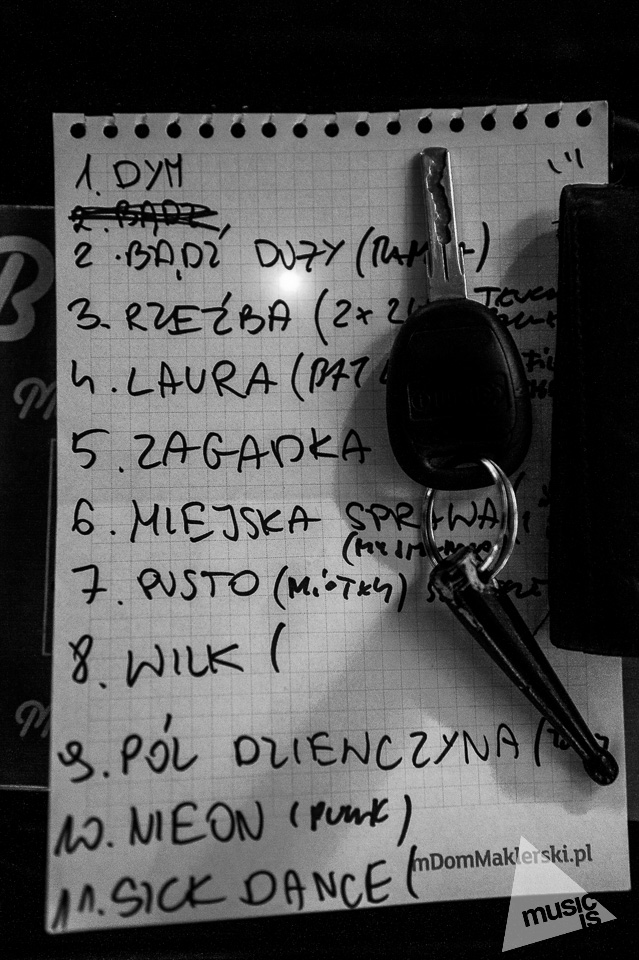 1. DYM
2. BĄDŹ,
2. BĄDŹ DUŻY (
3. RZEŹBA (2x
4. LAURA (
5. ZAGADKA
6. MIEJSKA SPRAWA
7. PUSTO (MIOTŁY)
8. WILK (
9. PÓL DZIEWCZYNA (
10. NEON (PUNK)
11. SICK DANCE (
mDomMaklerski.pl
music is